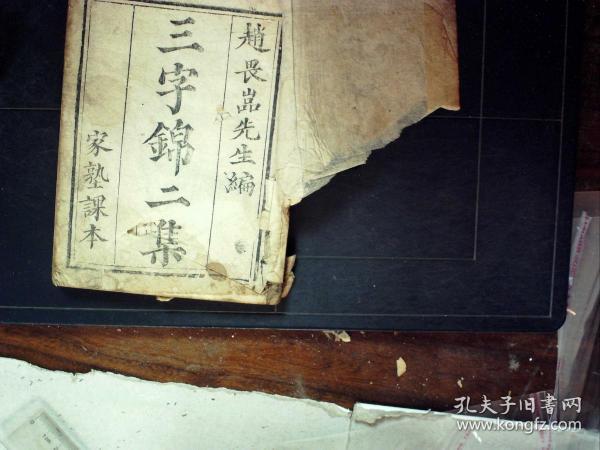 趙畏嵓先生編
三字錦二集
家塾課本
孔夫子旧书网
www.kongfz.com